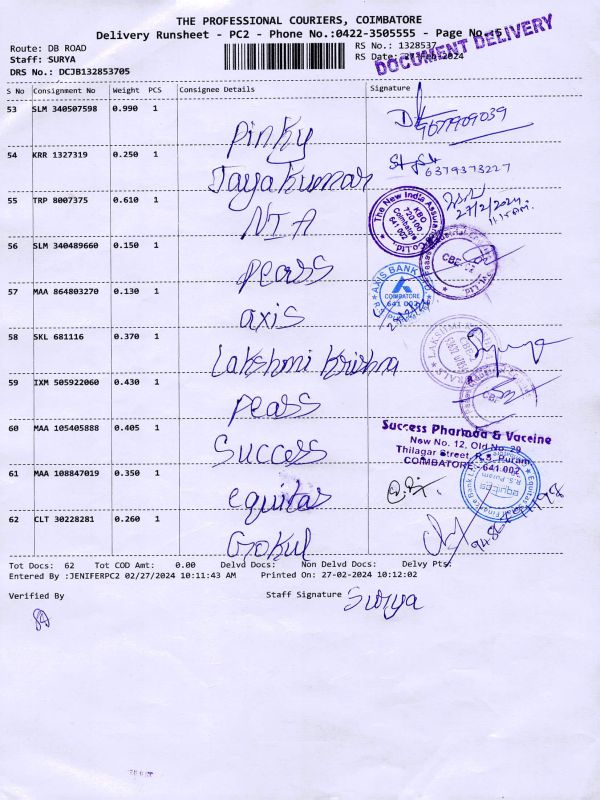 THE PROFESSIONAL COURIERS, COIMBATORE
Delivery Runsheet - PC2 - Phone No.:0422-3505555 - Page No.:5
Route: DB ROAD
Staff: SURYA
DRS No.: DCJB132853705
RS No.: 1328537
RS Date: 27-Feb-2024
DOCUMENT DELIVERY
S No Consignment No Weight PCS Consignee Details Signature
53 SLM 340507598 0.990 1 Pinky 9677909039
54 KRR 1327319 0.250 1 Jayakumar 6379373227
55 TRP 8007375 0.610 1 NIA 27/2/2024
The New India Assurance Co. Ltd.
KBO
720100
Coimbatore
641 002
56 SLM 340489660 0.150 1 pearss
57 MAA 864803270 0.130 1 axis
AXIS BANK LTD.
COIMBATORE
641 002
58 SKL 681116 0.370 1 Lakshmi Krishna Surya
59 IXM 505922060 0.430 1 pearss
60 MAA 105405888 0.405 1 Success
Success Pharmaa & Vaccine
New No. 12, Old No. 29
Thilagar Street, R.S. Puram,
COIMBATORE - 641 002
61 MAA 108847019 0.350 1 equitas
equitas
R.S. Puram
62 CLT 30228281 0.260 1 Gokul
Tot Docs: 62 Tot COD Amt: 0.00 Delvd Docs: Non Delvd Docs: Delvy Pts:
Entered By :JENIFERPC2 02/27/2024 10:11:43 AM Printed On: 27-02-2024 10:12:02
Verified By Staff Signature Surya